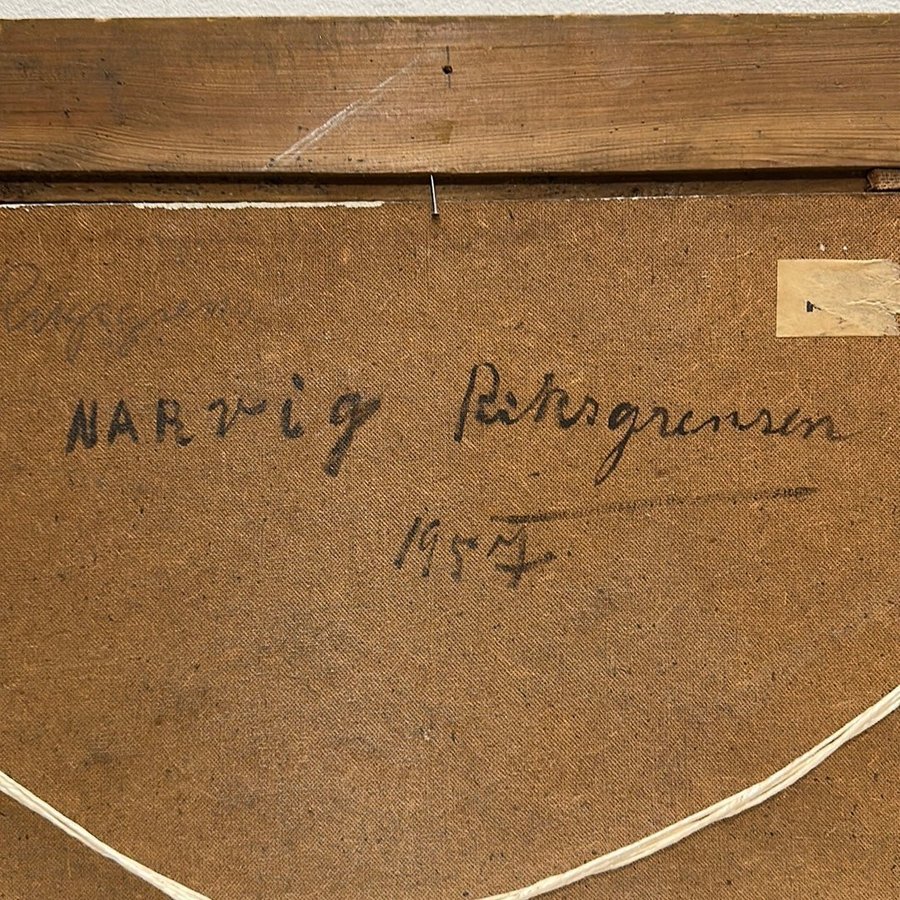 NARvig Riksgrensen
1957.